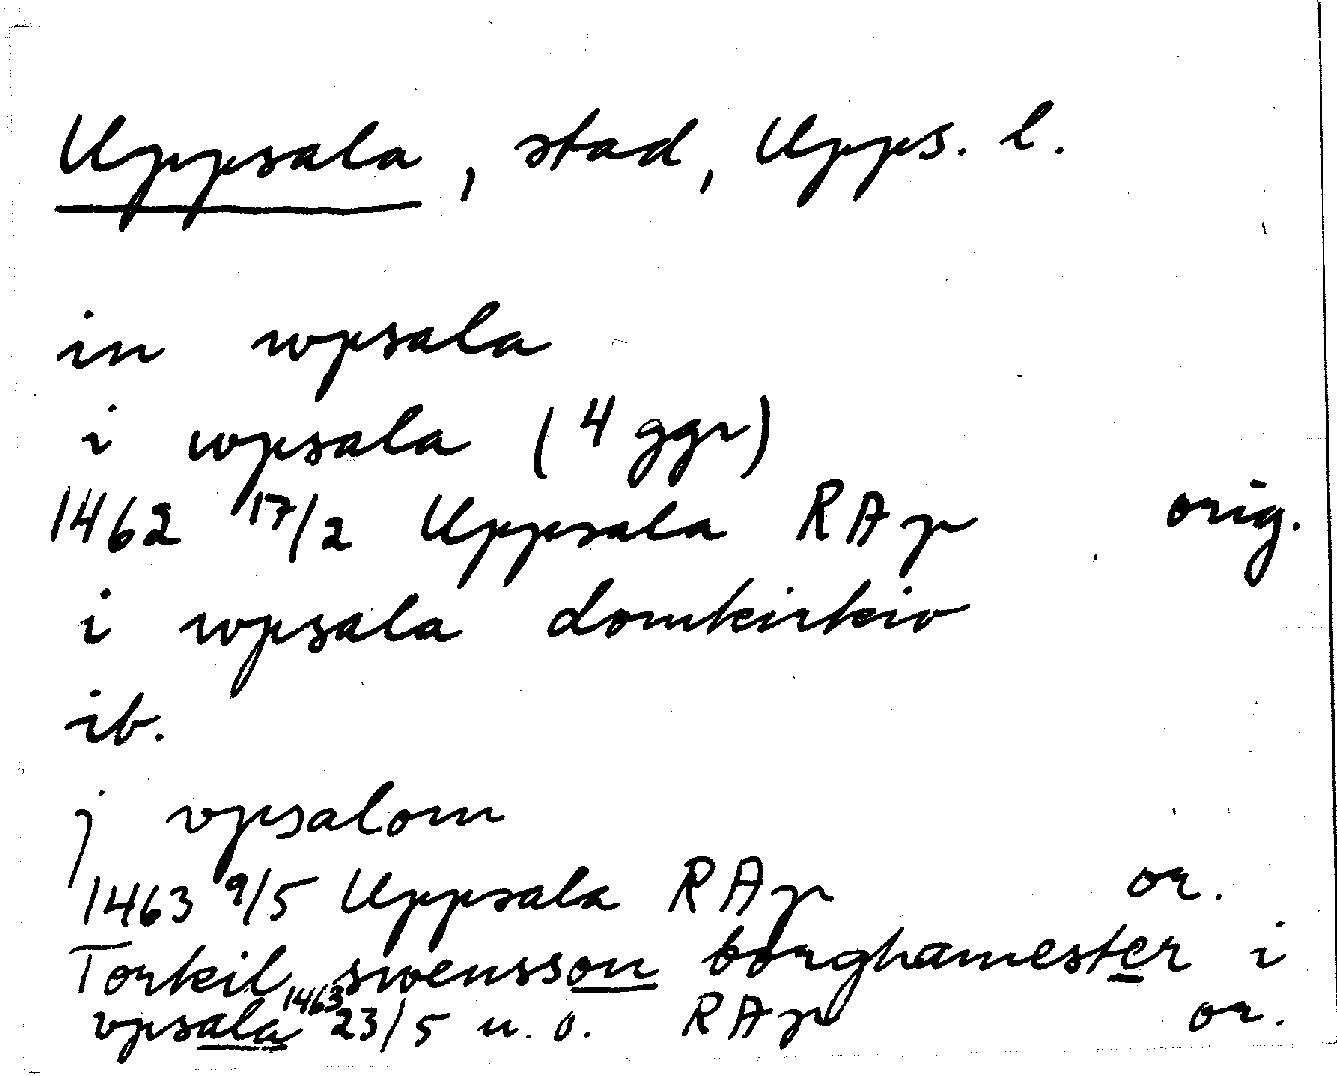 Uppsala, stad, Upps. l.
in wpsala
i wpsala (4 ggr)
1462 17/2 Uppsala RAp orig.
i wpsala domkirkio
ib.
j vpsalom
1463 9/5 Uppsala RAp or.
Torkil swensson borghamester i
vpsala 1463 23/5 u. o. RAp or.